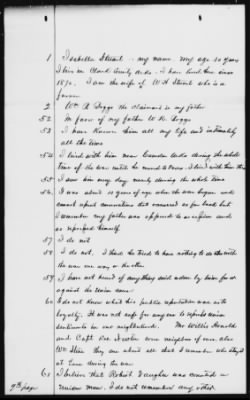 1 Isabella Stuart my name my age 30 years
I live in Cloud County Kans. I have lived here since
1870. I am the wife of W H Stuart who is a
farmer
2 Wm R Boggs the claimant is my father
52 In favor of my father W R Boggs
53 I have known him all my life and intimately
all the time
54 I lived with him near Camden Ark during the whole
time of the war until he moved to I lived with him then
55 I saw him every day nearly during the whole time
56 I was about 10 years of age when the war began and
cannot repeat conversations that occurred so far back but
I remember my father was opposed to secession and
so expressed himself
57 I do not
58 I do not. I think he tried to have nothing to do with
the war one way or the other
59 I have not heard of anything said or done by him
against the Union cause
60 I do not know what his public reputation was as to
loyalty. It was not safe for any one to express union
sentiments in our neighborhood. Mr Willis Harold
and Capt were neighbors of ours. Also
Wm they are about all that I remember who stayed
at home during the war
61 I believe that Robert Vaughn was counted a
union man. I do not remember any other
9th page